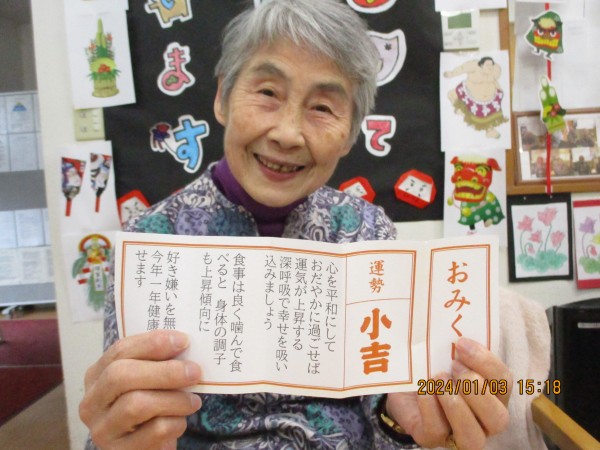 おみく
運勢
小吉
心を平和にして
おだやかに過ごせば
運気が上昇する
深呼吸で幸せを吸い
込みましょう
食事は良く噛んで食
べると 身体の調子
も上昇傾向に
好き嫌いを無
今年一年健康
せます
て
ます
2024/01/03 15:18